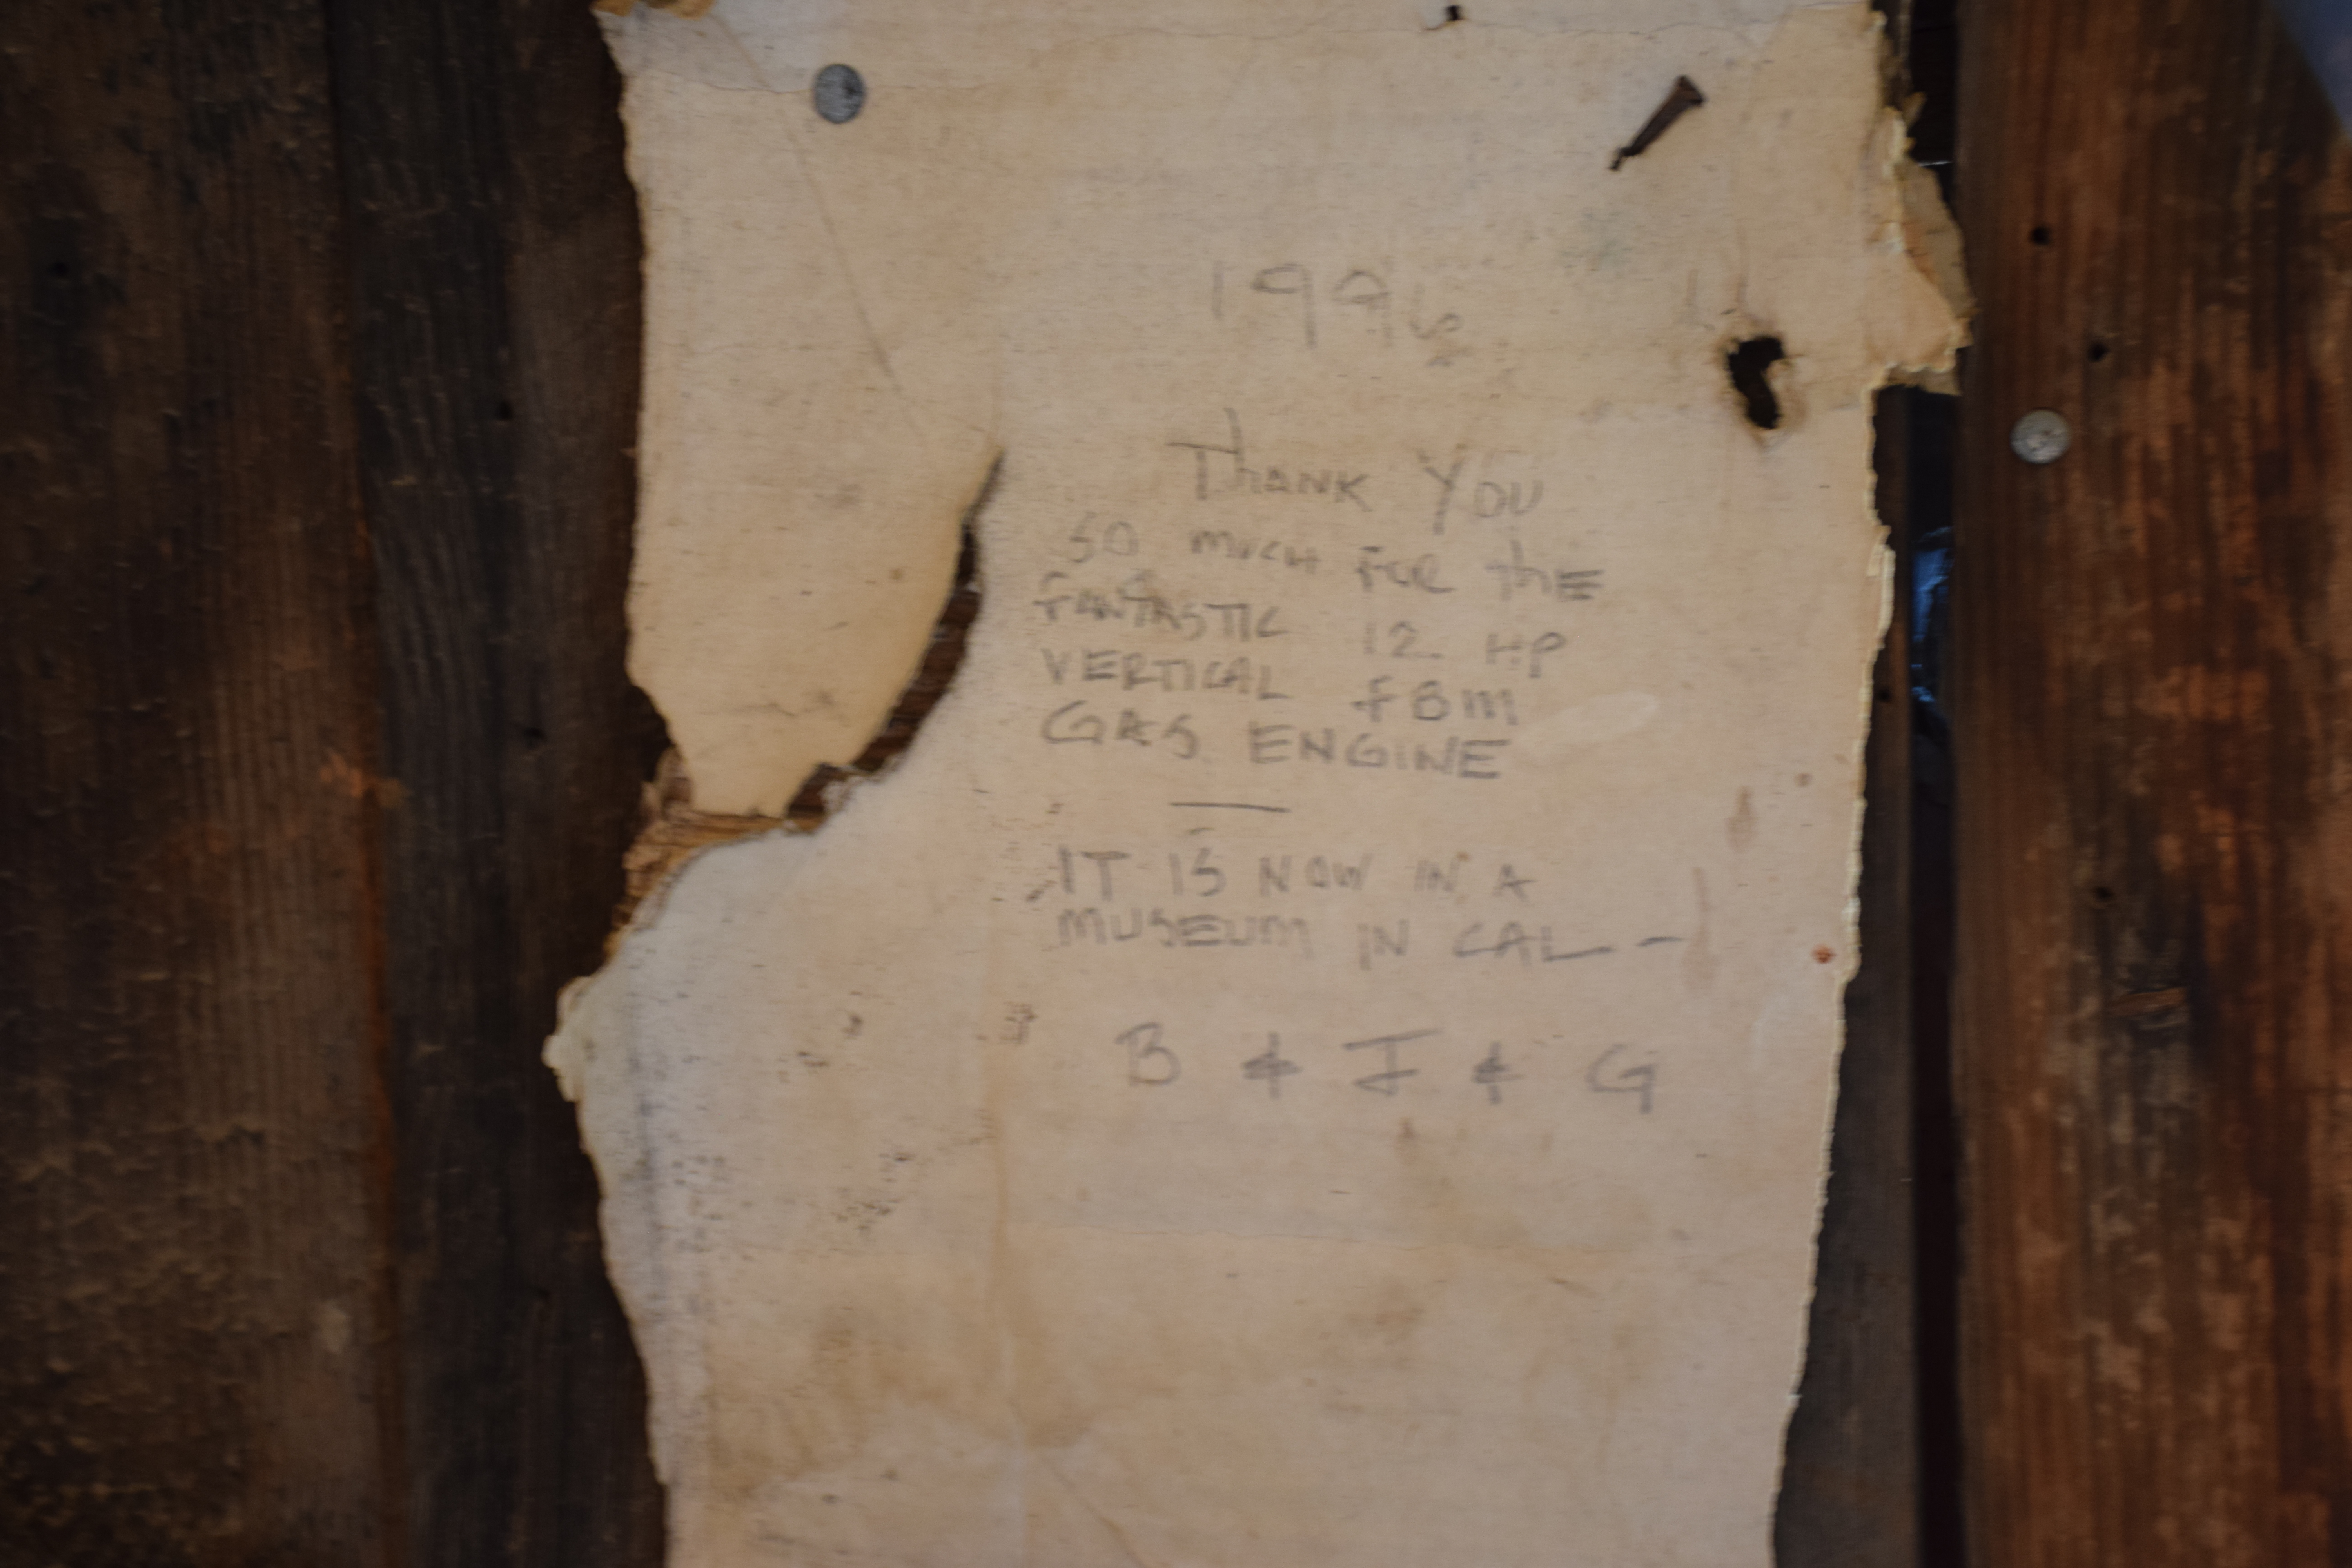 1996
Thank You
so much for the
fantastic 12 HP
VERTICAL FBM
GAS ENGINE
—
IT IS NOW IN A
MUSEUM IN CAL –
B & J & G